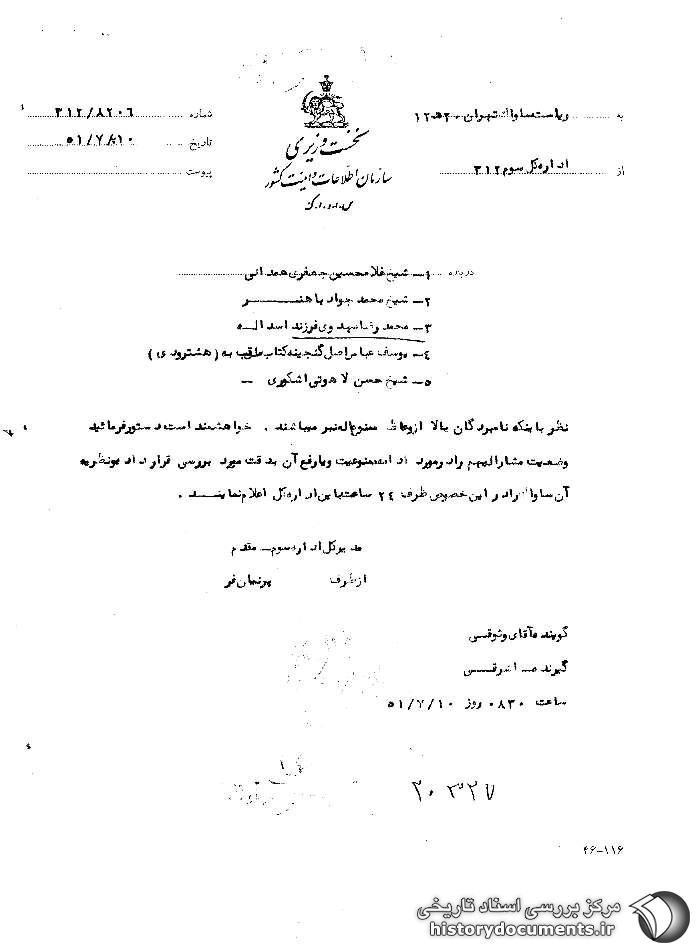 به ریاست ساواک تهران ۲۰ه۱۲
شماره ۳۱۲/۸۲۰۶
از اداره کل سوم ۳۱۲
تاریخ ۵۱/۷/۱۰
پیوست
نخست وزیری
سازمان اطلاعات و امنیت کشور
س.ا.و.ا.ک
درباره ۱- شیخ غلامحسین جعفری همدانی
۲- شیخ محمد جواد باهنر
۳- محمد رضا مهدوی فرزند اسداله
۴- یوسف عباس اصل گنجینه کتاب ملقب به (هشترودی)
۵- شیخ حسن لاهوتی اشکوری -
نظر باینکه نامبردگان بالا از وعاظ ممنوع المنبر میباشند . خواهشمند است دستور فرمائید
وضعیت مشارالیهم را در مورد ادامه ممنوعیت و یا رفع آن بدقت مورد بررسی قرار داده و نظریه
آن ساواک را در این خصوص ظرف ۲۴ ساعت باین اداره کل اعلام نمایند .
مدیر کل اداره سوم - مقدم
از طرف پرنیان فر
گوینده آقای وثوقی
گیرنده - اشرقی
ساعت ۰۸۳۰ روز ۵۱/۷/۱۰
۲۰۳۲۷
۴۶-۱۱۶
مرکز بررسی اسناد تاریخی
historydocuments.ir